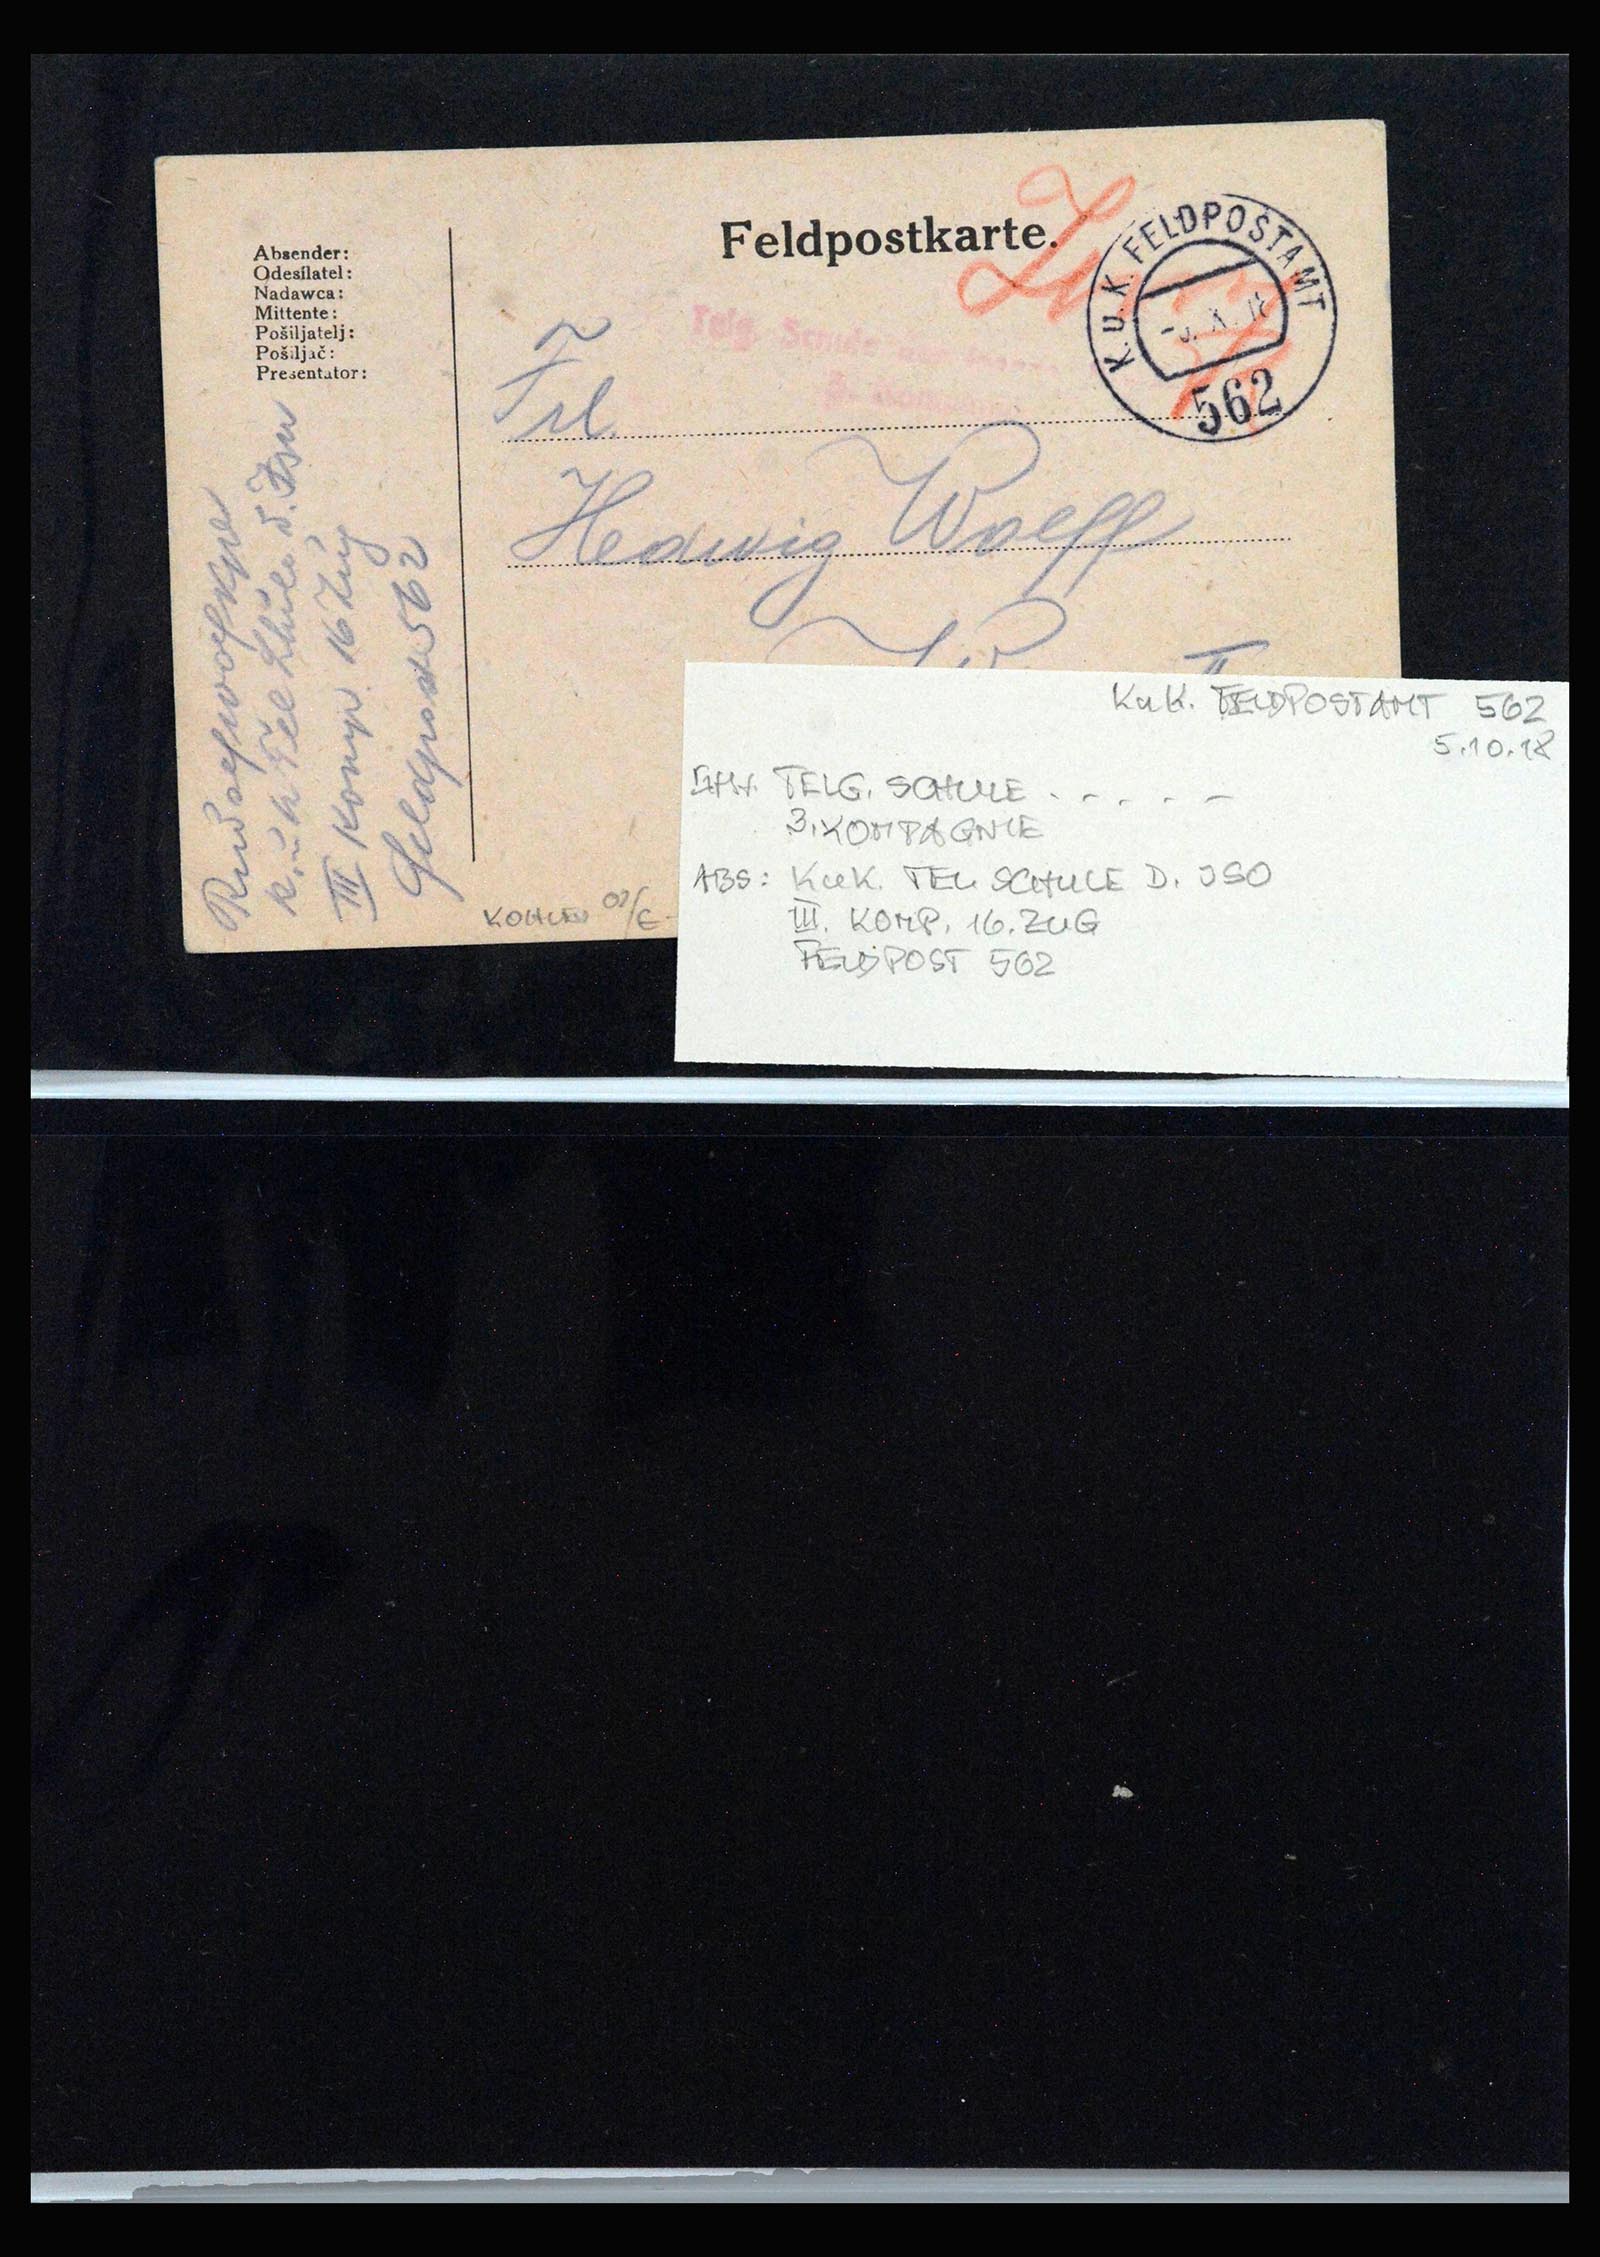 Feldpostkarte.
Absender:
Odesílatel:
Nadawca:
Mittente:
Pošiljatelj:
Pošiljač:
Presentator:
K. u. K. FELDPOSTAMT
562
Telg. Schule
3.
Frl.
Hedwig Wolff
II
k. u. k Tel Schule d.
III Komp. 16 Zug
Feldpost 562
K u K. FELDPOSTAMT 562
5.10.18
TELG. SCHULE . - . . . -
3. KOMPAGNIE
ABS: K u K. TEL SCHULE D. ISO
III. KOMP. 16. ZUG
FELDPOST 562